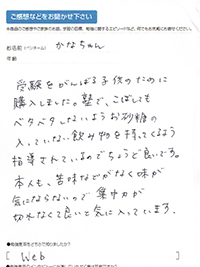 ご感想などをお聞かせ下さい
お名前(ペンネーム) かなちゃん
年齢
受験をがんばる子供のために
購入しました。塾で、こぼしても
ベタベタしないようお砂糖の
入っていない飲み物を持ってくるよう
指導されているのでちょうど良いです。
本人も、苦味などがなく味が
気にならないので集中力が
切れなくて良いと気に入っています。
[ Web ]